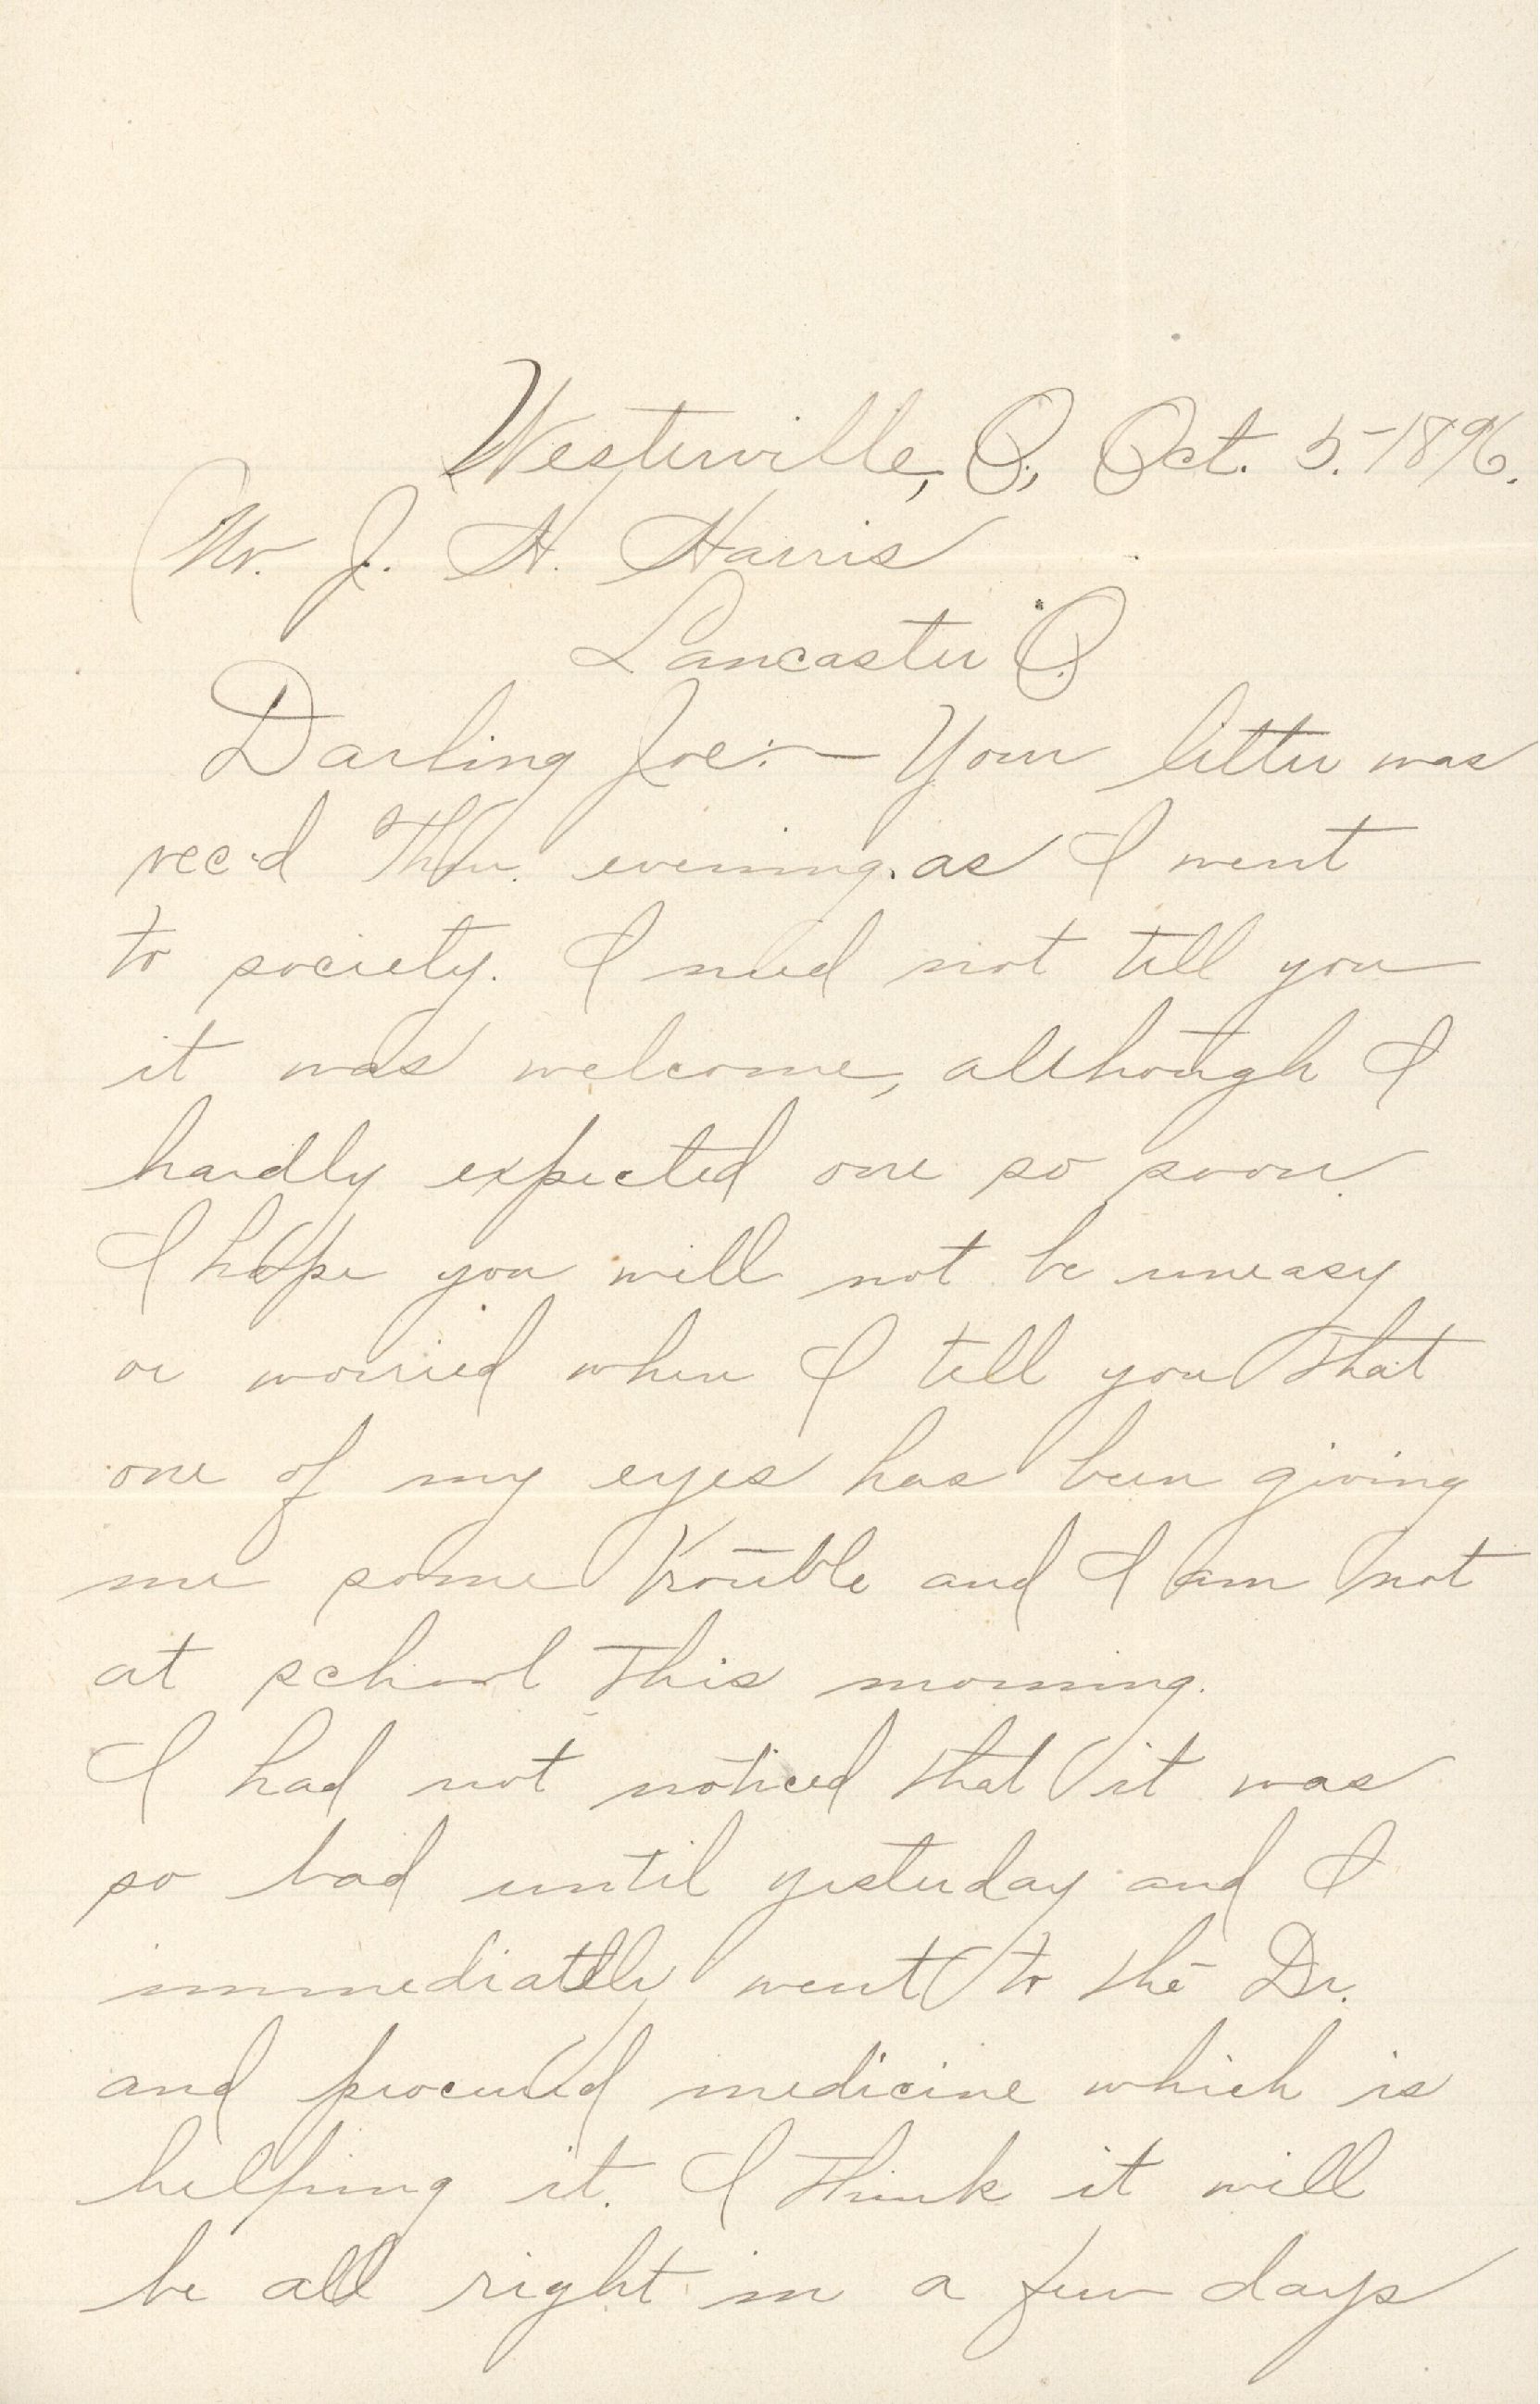 Westerville, O., Oct. 5.-1896.
Mr. J. H. Harris
Lancaster O.
Darling Joe:— Your letter was
rec'd Thur. evening. as I went
to society. I need not tell you
it was welcome, although I
hardly expected one so soon.
I hope you will not be uneasy
or worried when I tell you that
one of my eyes has been giving
me some trouble and I am not
at school this morning.
I had not noticed that it was
so bad until yesterday and I
immediately went to the Dr.
and procured medicine which is
helping it. I think it will
be all right in a few days